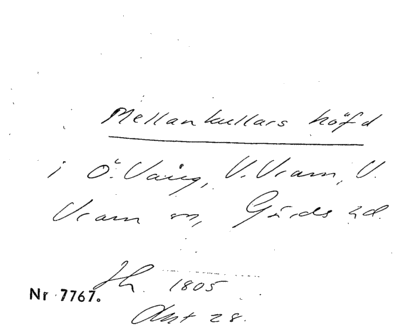 Mellankullars höfd
i Ö. Vång, V. Vram, V.
Vram sn, Gärds hd.
Jh. 1805
Nr 7767.
Akt 28.